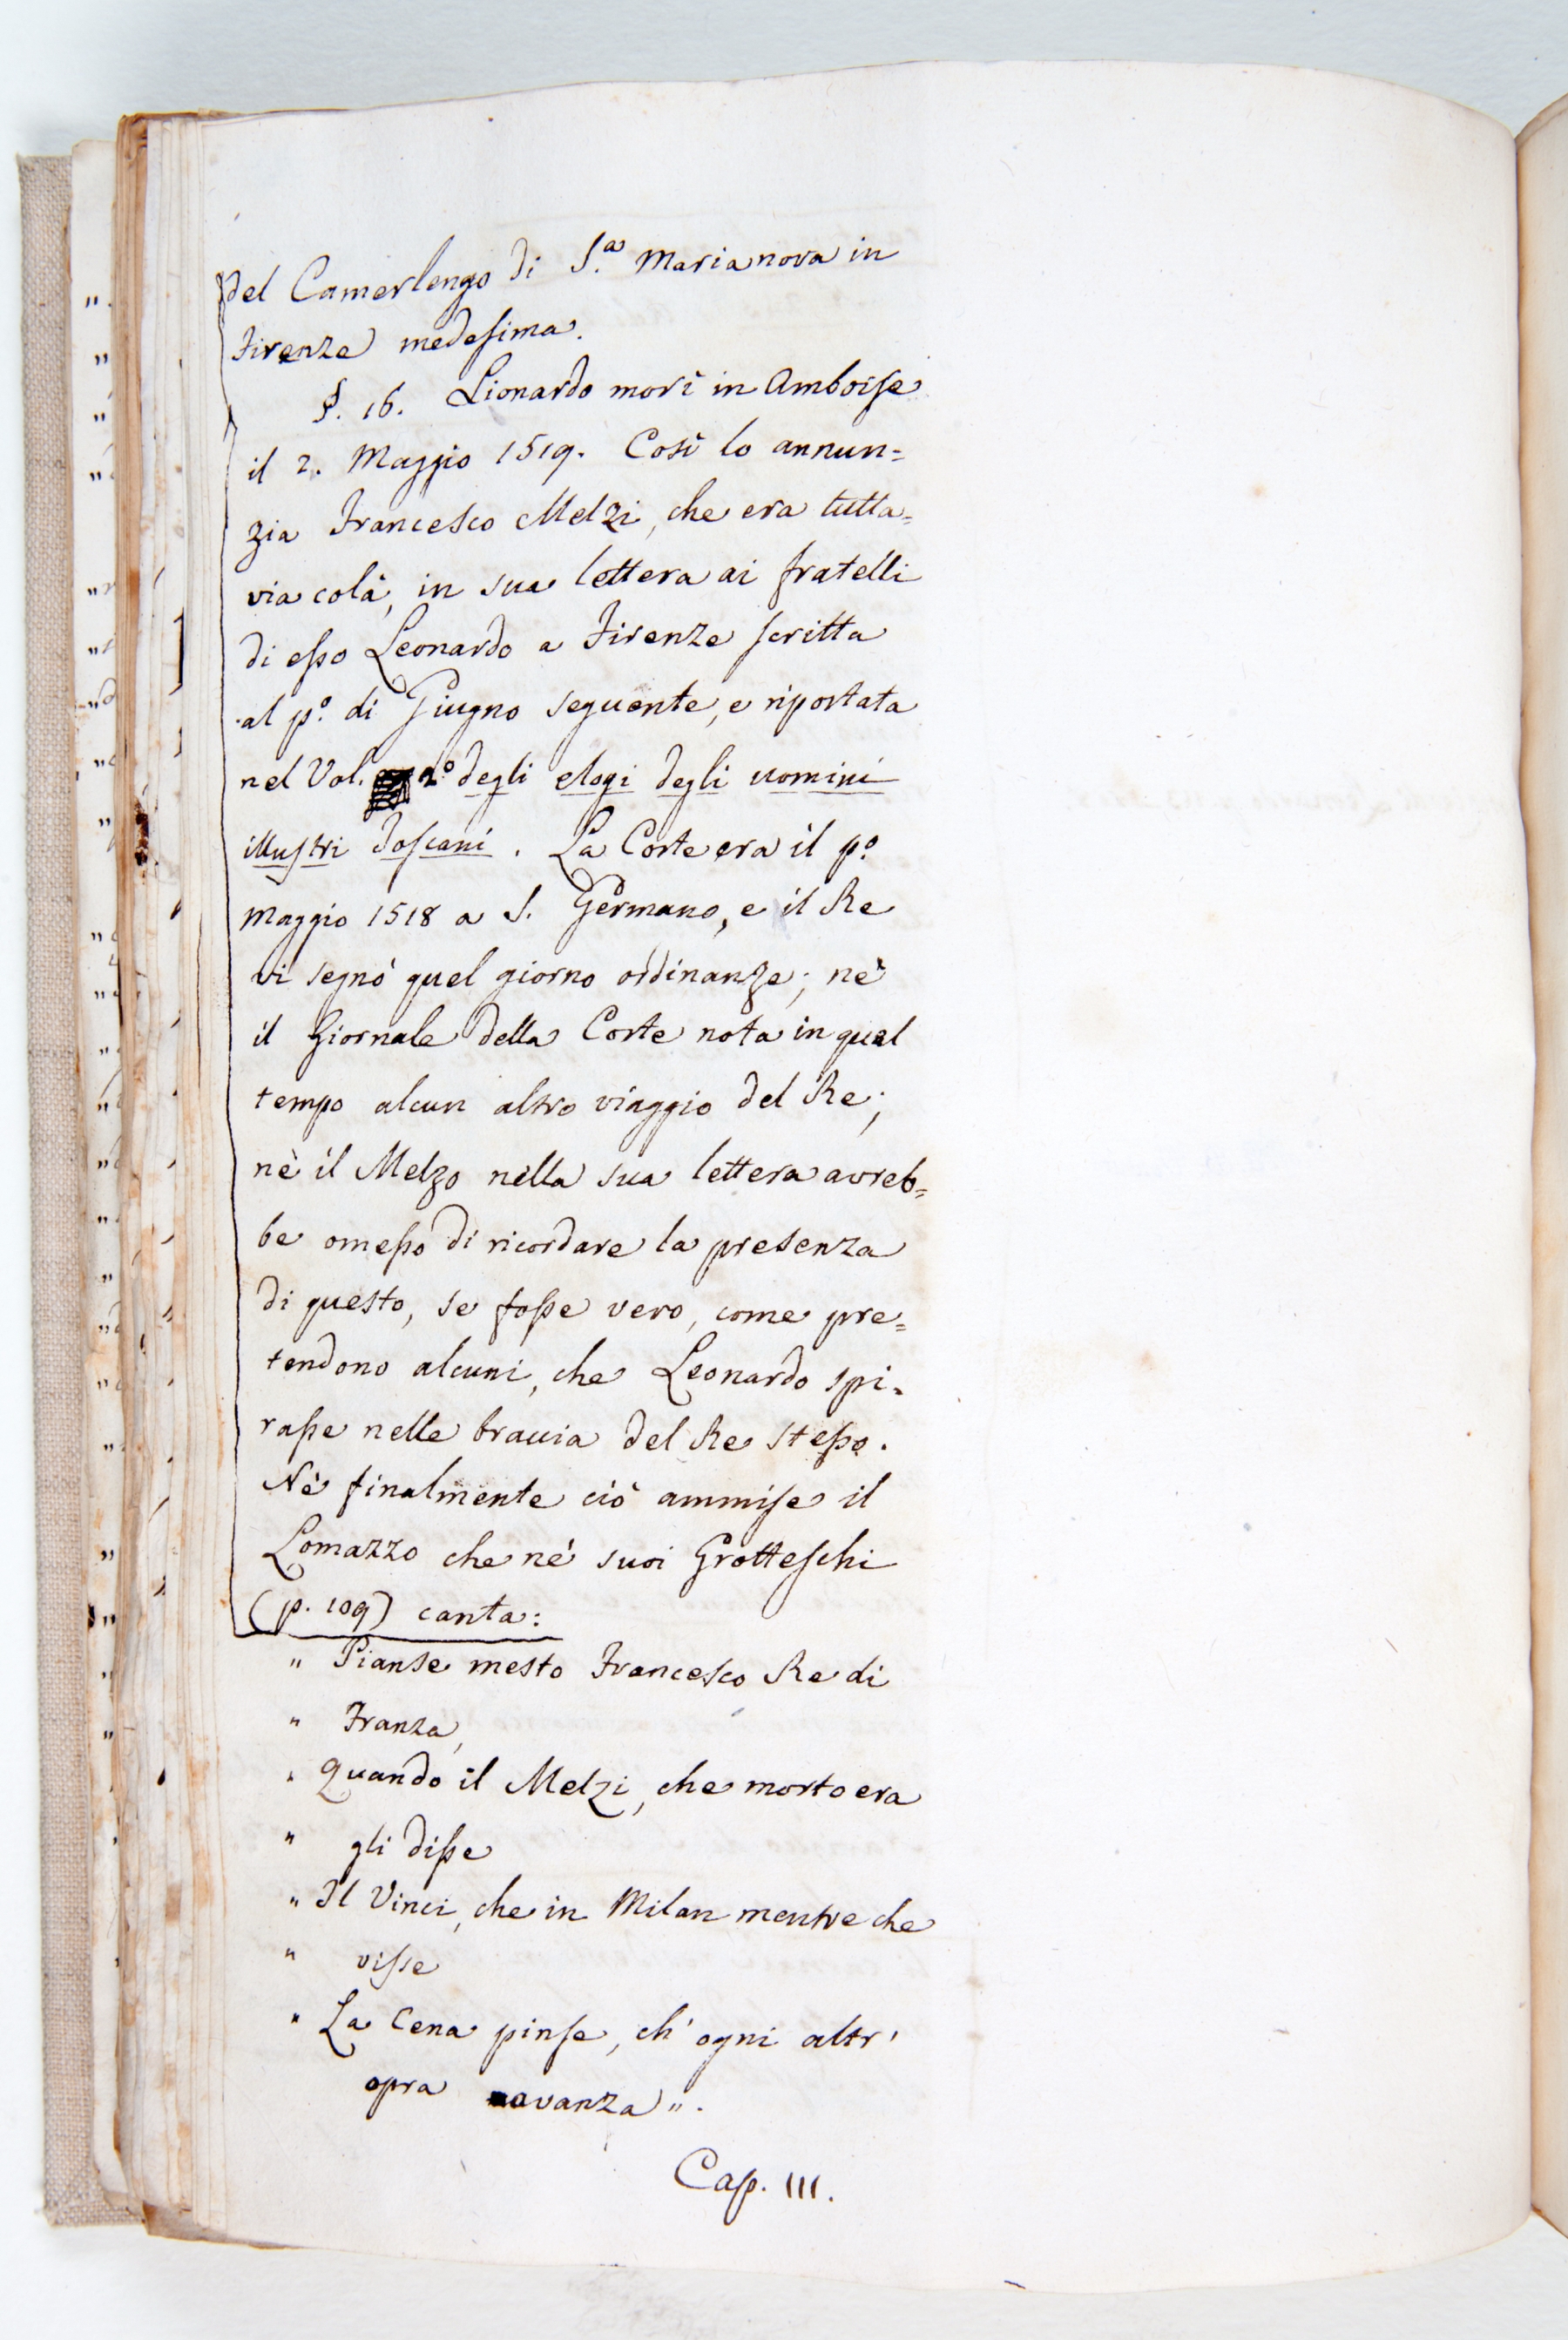 del Camerlengo di S.ª Maria nova in
Firenze medesima.
§. 16. Lionardo morì in Amboise
il 2. Maggio 1519. Così lo annun=
zia Francesco Melzi, che era tutta=
via colà, in sua lettera ai fratelli
di esso Leonardo a Firenze scritta
al p.º di Giugno seguente, e riportata
nel Vol. 2.º degli elogi degli uomini
illustri Toscani. La Corte era il p.º
Maggio 1518 a S. Germano, e il Re
vi segnò quel giorno ordinanze; nè
il Giornale della Corte nota in quel
tempo alcun altro viaggio del Re;
nè il Melzo nella sua lettera avreb=
be omesso di ricordare la presenza
di questo, se fosse vero, come pre=
tendono alcuni, che Leonardo spi=
rasse nelle braccia del Re stesso.
Nè finalmente ciò ammise il
Lomazzo che ne' suoi Grotteschi
(p. 109) canta:
" Pianse mesto Francesco Re di
" Franza,
" Quando il Melzi, che morto era
" gli disse
" Il Vinci, che in Milan mentre che
" visse
" La Cena pinse, ch' ogni altr'
opra avanza".
Cap. III.